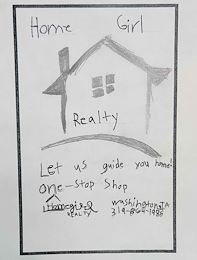 Home Girl
Realty
Let us guide you home!
One-Stop Shop
Homegirl
REALTY
Washington, IA
319-864-1986